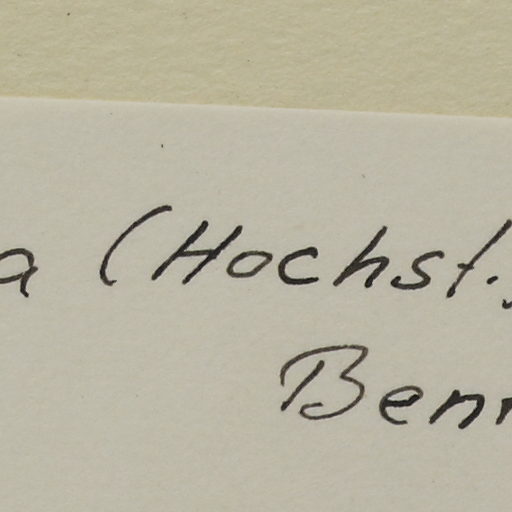 a (Hochst.)
Benn